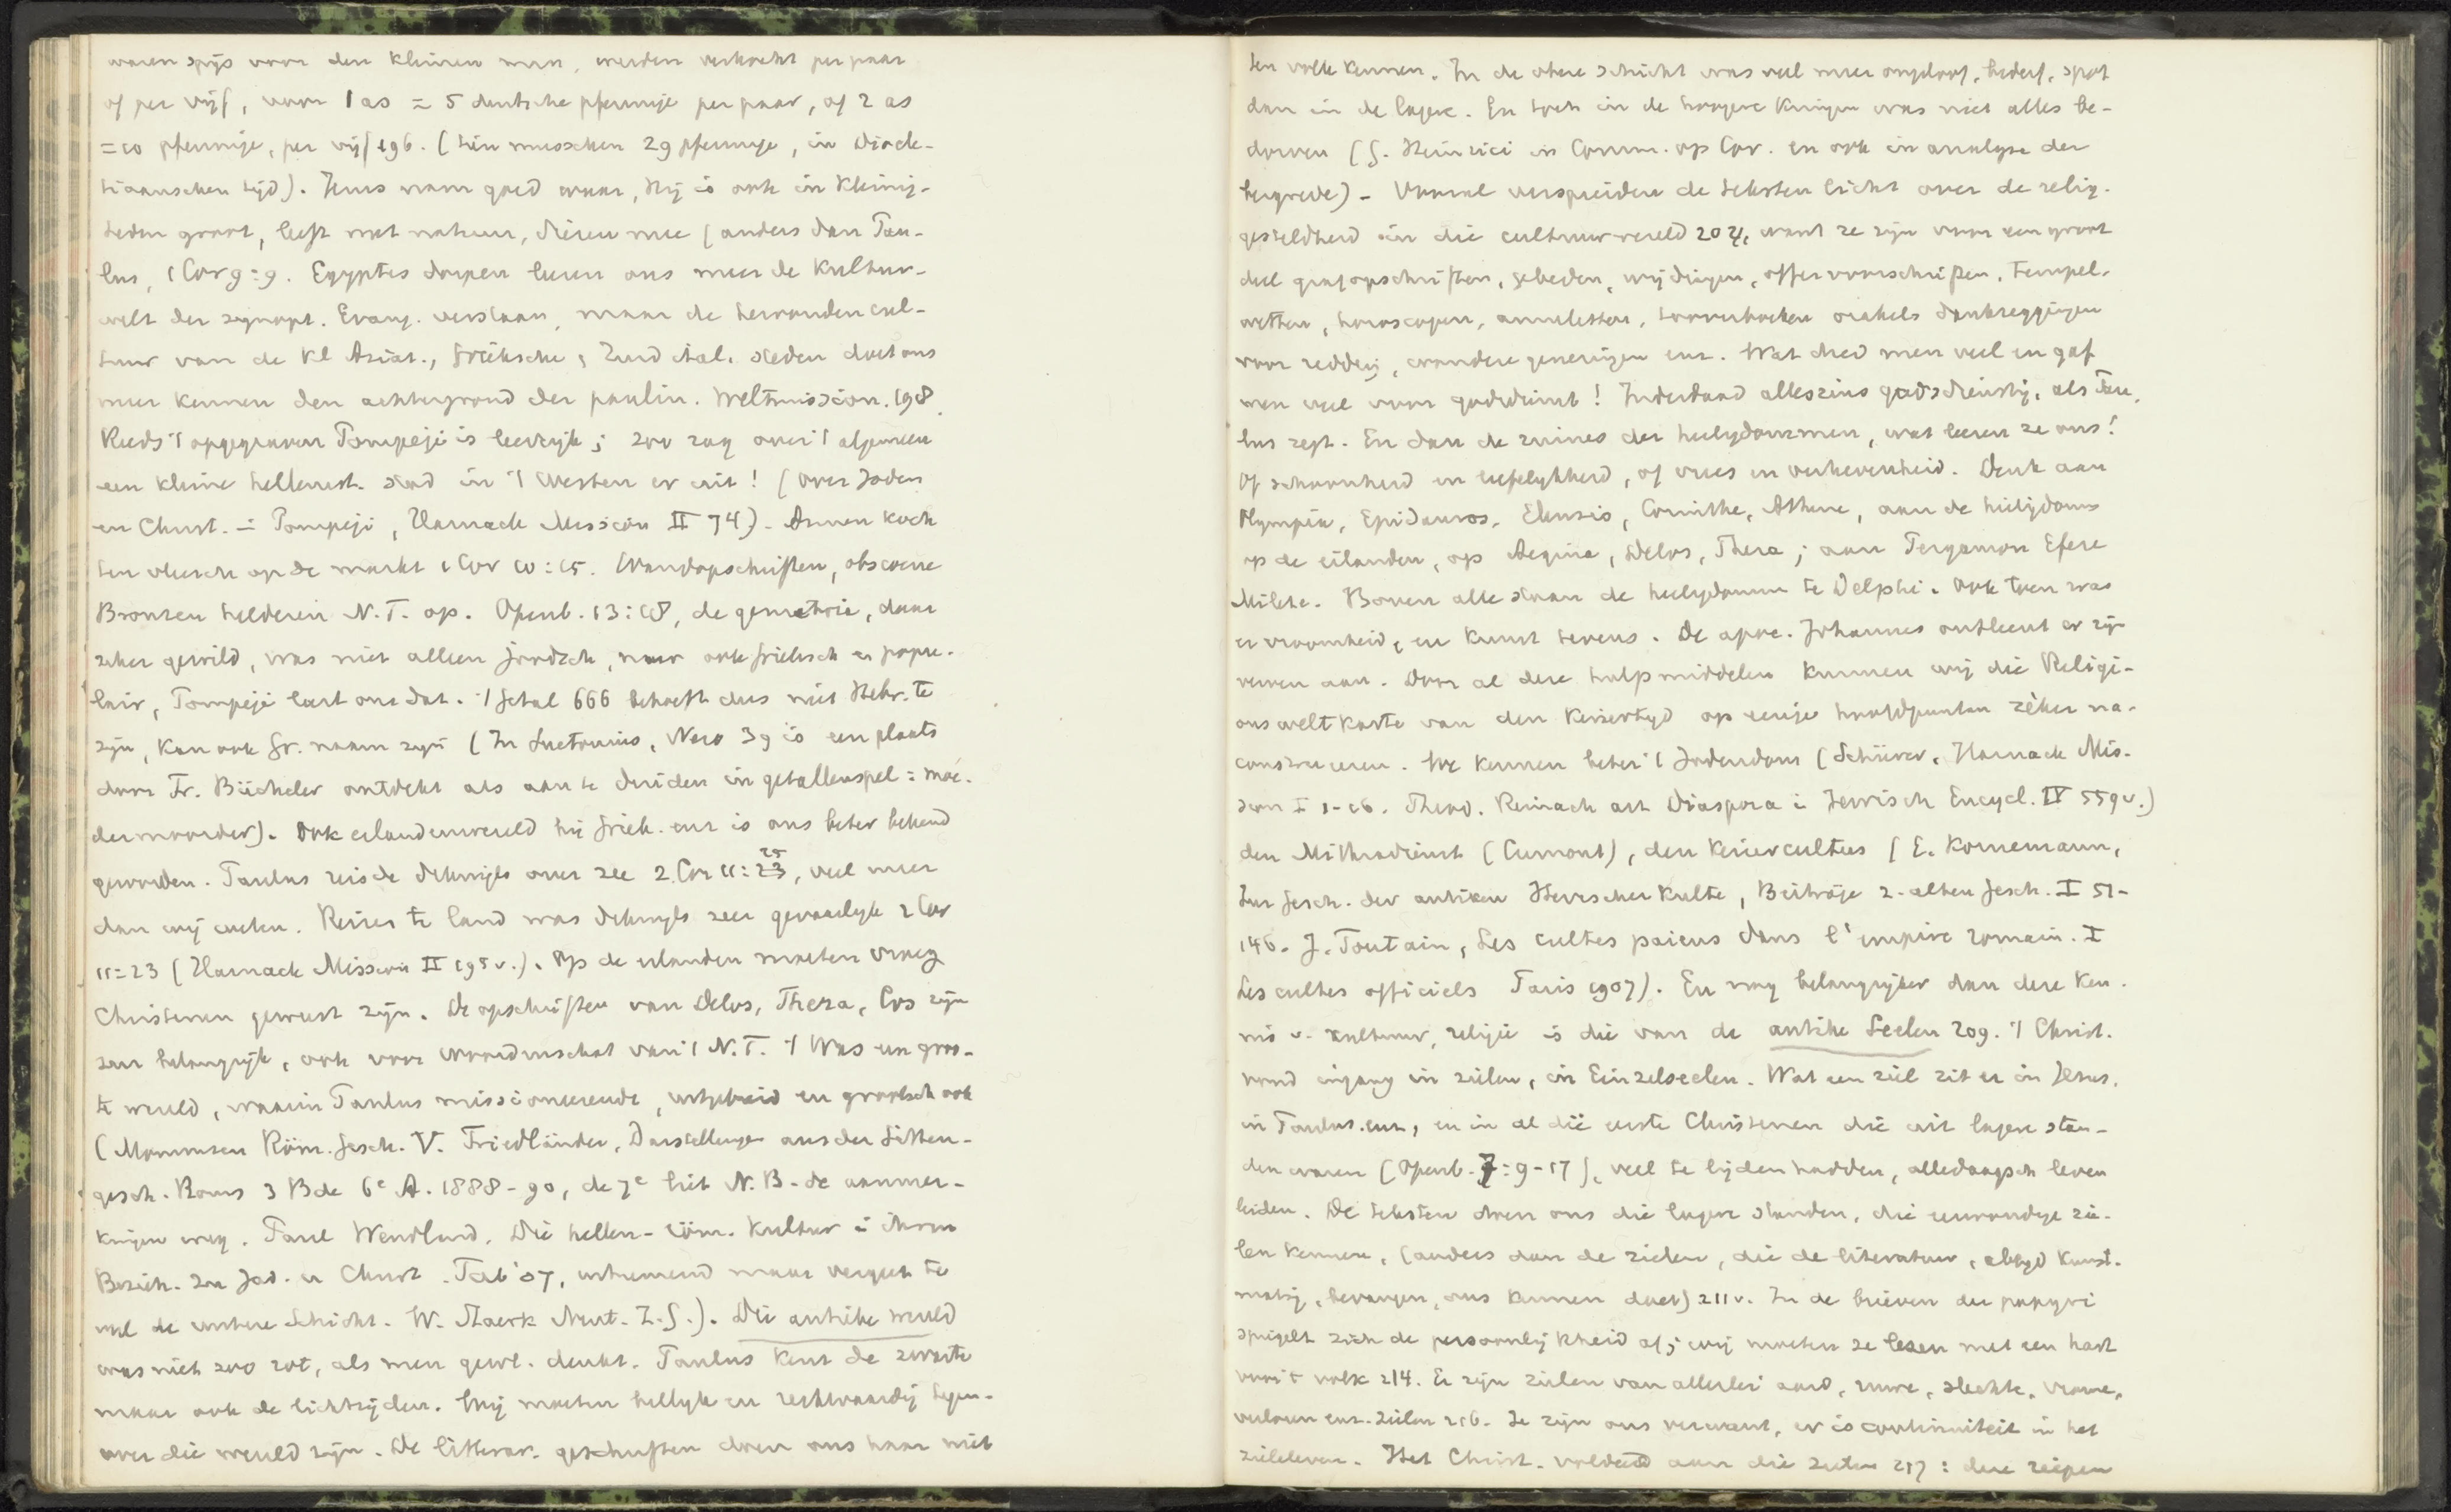 waren spijs voor den kleinen man, werden verkocht per paar
of per vijf, voor 1 as = 5 deutsche pfennige per paar, of 2 as
= 10 pfennige, per vijf 196. (tien musschen 29 pfennige, in Diocle-
tiaanschen tijd). Jezus nam goed waar, Hij is ook in kleinig-
heden groot, leeft met natuur, dieren mee (anders dan Pau-
lus, 1 Cor 9:9. Egyptes dorpen leeren ons meer de Kultur-
welt der synopt. Evang. verstaan, maar de herwonden cul-
tuur van de Kl Aziat., Grieksche, Zuid ital. steden doet ons
meer kennen den achtergrond der paulin. Weltmission. 198
Reeds 't opgegraven Pompeji is leerrijk; zoo zag over 't algemeen
een kleine hellenist. stad in 't Westen er uit! (over Joden
en Christ. in Pompeji, Harnack Mission II 74). Armen koch
ten vleesch op de markt 1 Cor 10:15. Wandopschriften, obscoene
Bronzen helderen N.T. op. Openb. 13:18, de gematrie, daar
zeker gewild, was niet alleen joodsch, maar ook grieksch en popu-
lair, Pompeji leert ons dat. 't Getal 666 behoeft dus niet Hebr. te
zijn, kan ook Gr. naam zijn (In Suetonius, Nero 39 is een plaats
door Fr. Bücheler ontdekt als aan te duiden in getallenspel: moe-
dermoorder). Ook eilandenwereld bij Griek. enz is ons beter bekend
geworden. Paulus reisde dikwijls over zee 2 Cor 11:25, veel meer
dan wij weten. Reizen te land was dikwijls zeer gevaarlijk 2 Cor
11:23 (Harnack Mission II 195 v.). Op de eilanden moeten vroeg
Christenen geweest zijn. De opschriften van Delos, Thera, Cos zijn
zeer belangrijk, ook voor woordenschat van 't N.T. 't Was een groo-
te wereld, waarin Paulus missioneerende, uitgebreid en grootsch ook
(Mommsen Röm. Gesch. V. Friedländer, Darstellungen aus der Sitten-
gesch. Roms 3 Bde 6e A. 1888-90, de 7e liet N.B. de aanmer-
kingen weg. Paul Wendland, Die hellen-röm. Kultur i ihren
Bezieh. zu Jud. u Christ. Tüb '07, uitnemend maar vergeet te
veel de untere Schicht. W. Staerk Neut. Z.G.). Die antieke wereld
was niet zoo rot, als men gewl. denkt. Paulus kent de zwarte
maar ook de lichtzijden. Wij moeten billijk en rechtvaardig tegen-
over die wereld zijn. De litterar. geschriften doen ons haar niet
ten volle kennen. In de obere Schicht was veel meer ongeloof, bederf, spot
dan in de lagere. En toch in de hoogere kringen was niet alles be-
dorven (G. Heinrici in Comm. op Cor. en ook in analyse der
bergrede). Vooral verspreiden de teksten licht over de relig.
gesteldheid in die cultuurwereld 204, want ze zijn voor een groot
deel grafopschriften, gebeden, wijdingen, offervoorschriften, tempel-
wetten, horoscopen, amuletten, tooverboeken orakels dankzeggingen
voor redding, wondere genezingen enz. Wat deed men veel en gaf
men veel voor godsdienst! Inderdaad alleszins godsdienstig, als Pau-
lus zegt. En dan de ruines der heiligdommen, wat leeren ze ons!
Of schoonheid en liefelijkheid, of vrees en verhevenheid. Denk aan
Olympia, Epidauros, Eleusis, Corinthe, Athene, aan de heiligdoms
op de eilanden, op Aegina, Delos, Thera; aan Pergamon Efeze
Milete. Boven alle staan de heiligdommen te Delphi. Ook toen was
er vroomheid, en kunst tevens. De apoc. Johannes ontleent er zijn
verven aan. Door al deze hulpmiddelen kunnen wij die Religi-
onsweltkarte van den Keizertijd op eenige hoofdpunten zéker na-
construeeren. We kennen beter 't Jodendom (Schürer, Harnack Mis-
sion I 1-16. Theod. Reinach art Diaspora i Jewish Encycl. IV 559 v.)
den Mithradienst (Cumont), den Keizercultus (E. Kornemann,
Zur Gesch. der antiken Herrscherkulte, Beiträge z. alten Gesch. I 51-
146. J. Toutain, Les cultes païens dans l'empire romain. I
Les cultes officiels Paris 1907). En nog belangrijker dan deze ken-
nis v. kultuur, religie is die van de antike Seelen 209. 't Christ.
vond ingang in zielen, in Einzelseelen. Wat een ziel zit er in Jezus,
in Paulus enz, en in al die eerste Christenen die uit lagere stan-
den waren (Openb. 7:9-17), veel te lijden hadden, alledaagsch leven
leiden. De teksten doen ons die lagere standen, die eenvoudige zie-
len kennen, (anders dan de zielen, die de literatuur, altijd kunst-
matig, bevangen, ons kennen doet) 211 v. In de brieven der papyri
spiegelt zich de persoonlijkheid af; wij moeten ze lezen met een hart
voor 't volk 214. Er zijn zielen van allerlei aard, ruwe, slechte, vrome,
verloren enz. zielen 216. Ze zijn ons verwant, er is continuiteit in het
zieleleven. Het Christ. voldeed aan die zielen 217: deze riepen